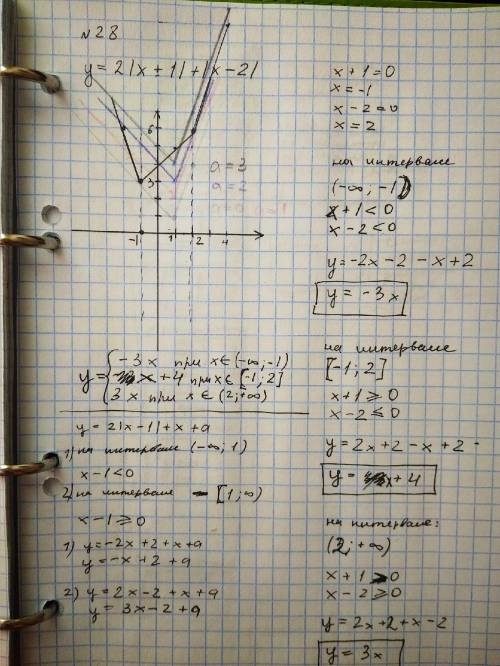 №28
y = 2|x + 1| + |x - 2|
6
3
-1
1
2
4
a = 3
a = 2
y = { -3x при x ∈ (-∞; -1)
x + 4 при x ∈ [-1; 2]
3x при x ∈ (2; +∞)
y = 2|x - 1| + x + a
1) на интервале (-∞; 1)
x - 1 < 0
2) на интервале [1; ∞)
x - 1 ≥ 0
1) y = -2x + 2 + x + a
y = -x + 2 + a
2) y = 2x - 2 + x + a
y = 3x - 2 + a
x + 1 = 0
x = -1
x - 2 = 0
x = 2
на интервале
(-∞; -1)
x + 1 < 0
x - 2 < 0
y = -2x - 2 - x + 2
y = -3x
на интервале
[-1; 2]
x + 1 ≥ 0
x - 2 ≤ 0
y = 2x + 2 - x + 2 -
y = x + 4
на интервале:
(2; +∞)
x + 1 > 0
x - 2 ≥ 0
y = 2x + 2 + x - 2
y = 3x